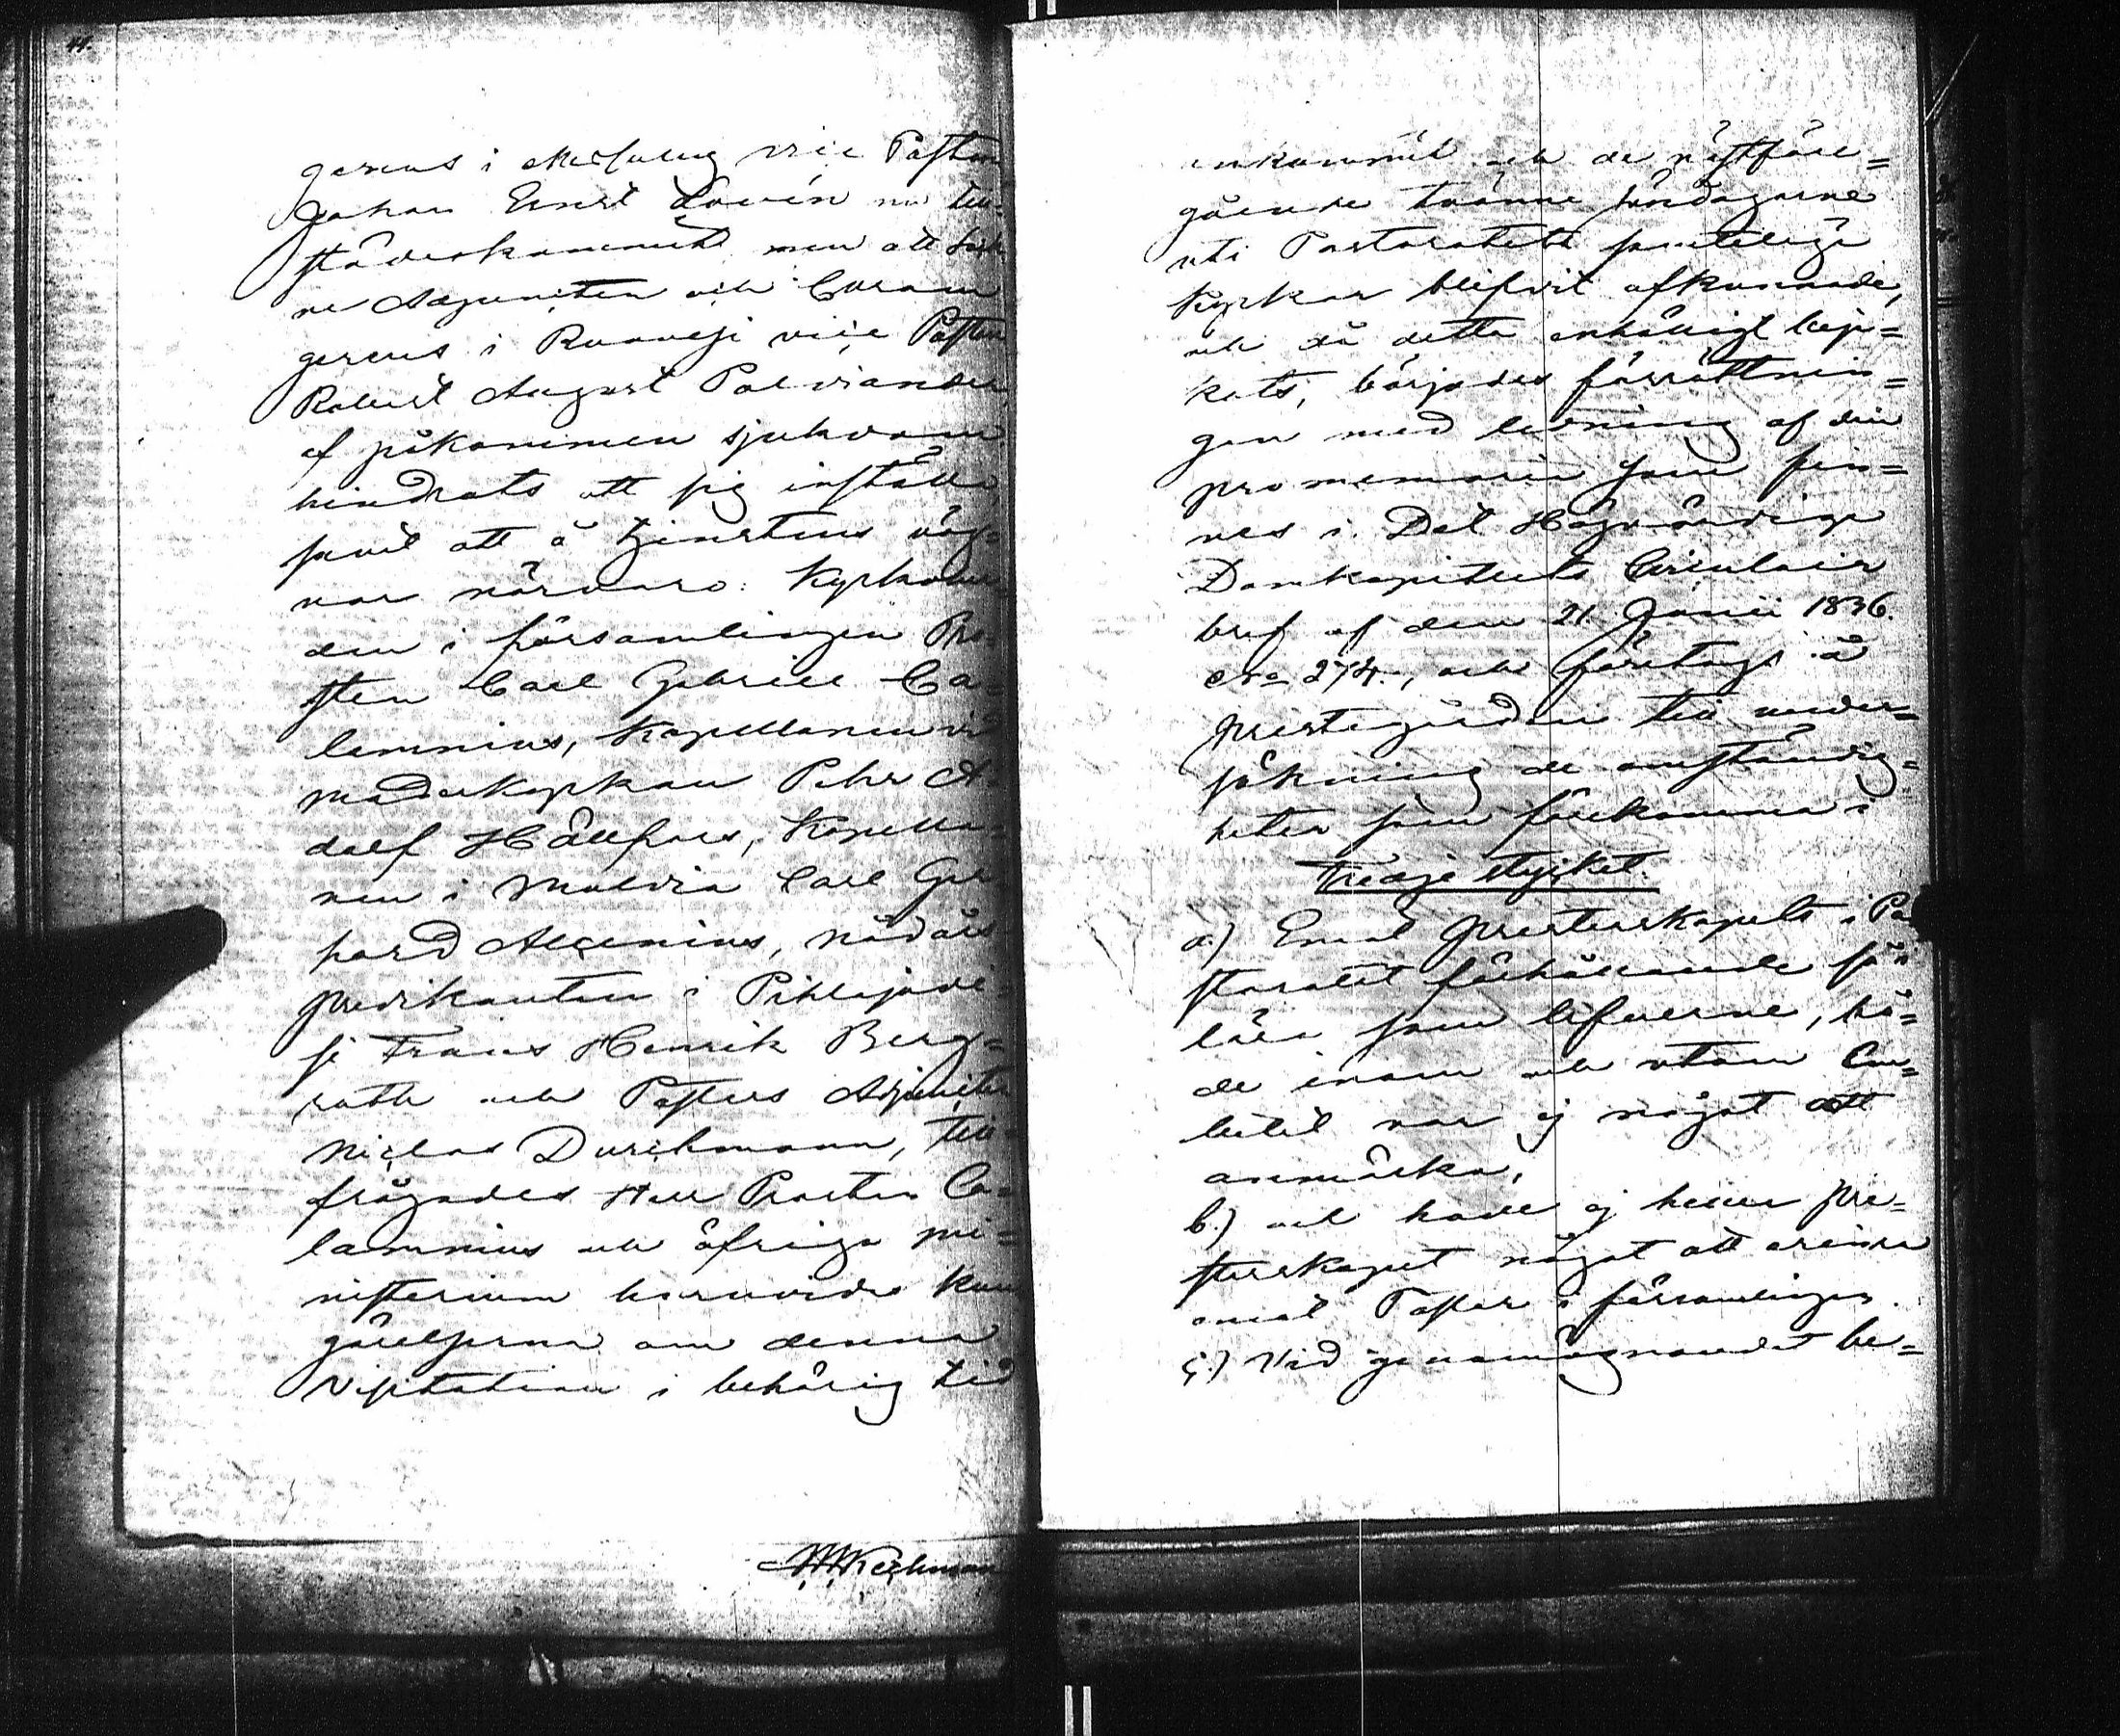 44.
gerens i vice Pastorn
Johan Ernst Lovén nu till-
städeskommit men att
ne Adjuncten och Curam
gerens i Ruovesi vice Pastorn
Robert August Palviander
af påkommen sjukdom
hindrats att sig inställa
samt att å tjenstens väg-
nar närvaro: Kyrkoher-
den i församlingen Pro-
sten Carl Gabriel Ca-
lamnius, Kapellanen vid
Moderkyrkan Pehr A-
dolf Hällfors, Kapella-
nen i Multia Carl Ger-
hard Alcenius, nådårs
predikanten i Pihlajave-
si Frans Henrik Berg-
roth och Pastors Adjuncten
Niclas Durchmann, till-
frågades Herr Prosten Ca-
lamnius och öfriga mi-
nisterium huruvida kun
görelserna om denna
Visitation i behörig tid
ankommit och de nästföre-
gående tvänne söndagarne
uti Pastoratets samteliga
Kyrkor blifvit afkunnade,
och då detta enhälligt beja-
kats, börjades förrättnin-
gen med läsning af den
promemoria som fin-
nes i Det Högvördiga
Domkapitlets Circulair
bref af den 21 Junii 1836.
No 274., och företogs å
prestegården till under-
sökning de omständig-
heter som förekomma i
Tredje stycket.
a.) Emot Presterskapets i Pa
storatet förhållande så i
lära som lefverne, bå-
de inom och utom Em-
betet var ej något att
anmärka,
b.) och hade ej heller pre-
sterskapet något att erinra
emot Pastor i församlingen.
c.) Vid genomögnandet be-